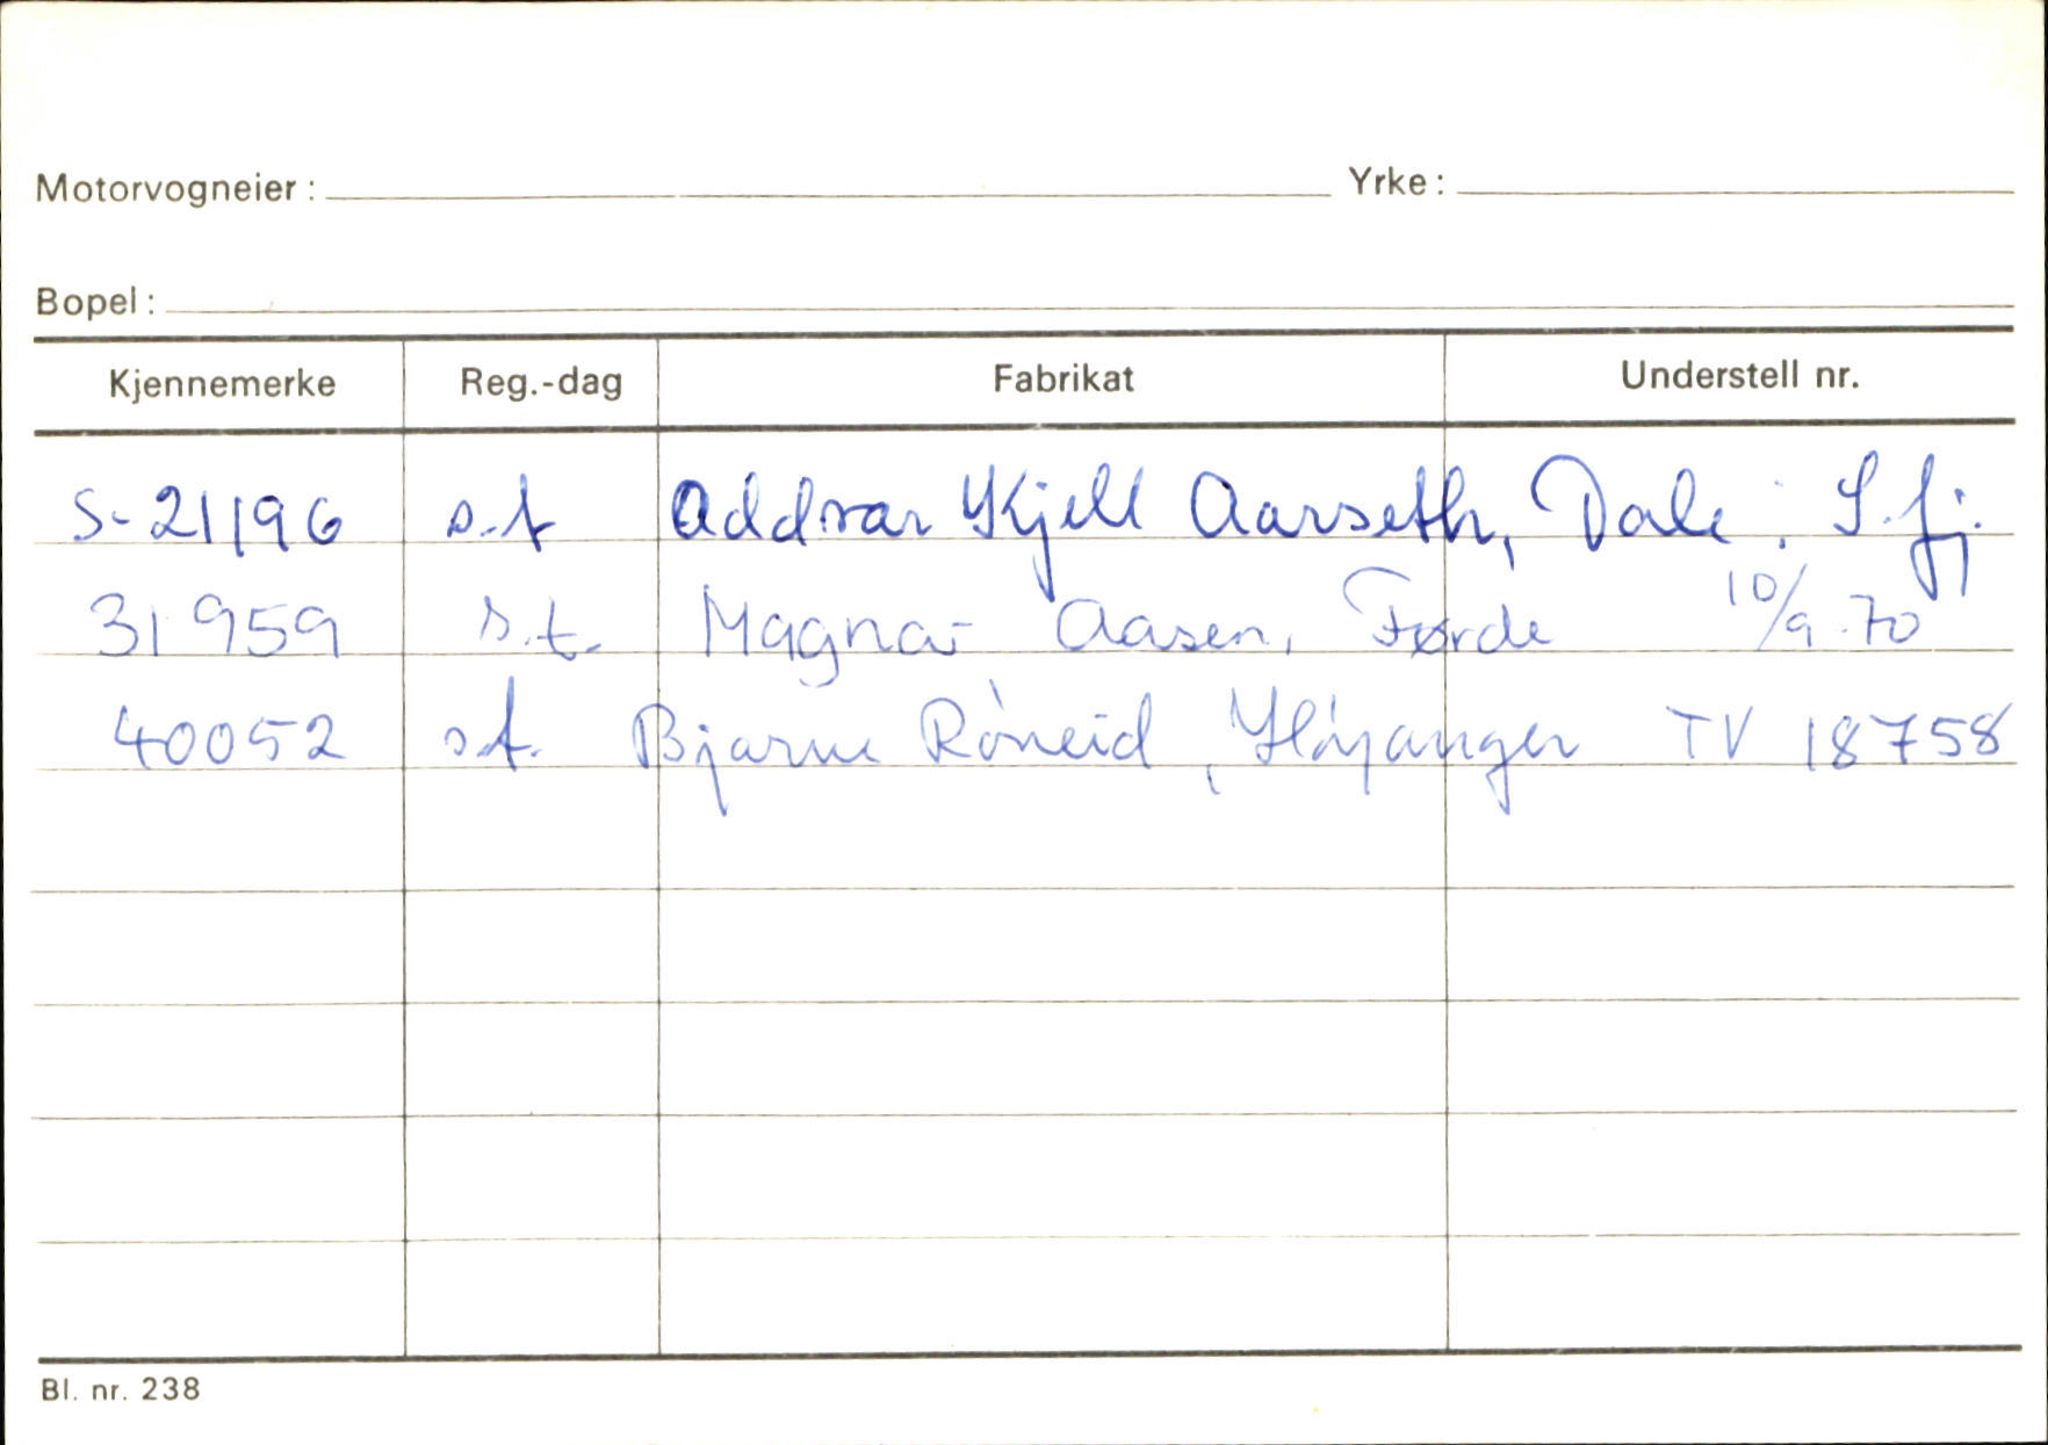 Motorvogneier: Yrke:
Bopel:
Kjennemerke Reg.-dag Fabrikat Understell nr.
S-21196 s.t Addvar Kjell Aarseth, Dale i S.fj.
31959 s.t. Magnar Aasen, Førde 10/9-70
40052 s.t. Bjarne Róneid, Høyanger TV 18758
Bl. nr. 238